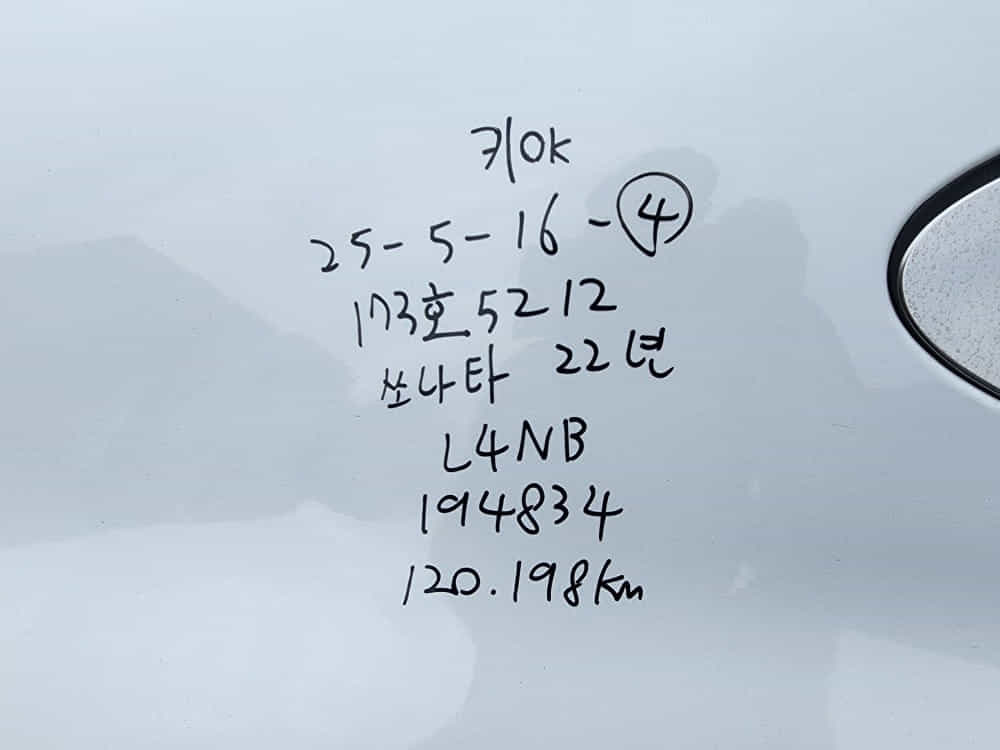 키OK
25-5-16-④
173호5212
쏘나타 22년
L4NB
194834
120.198km